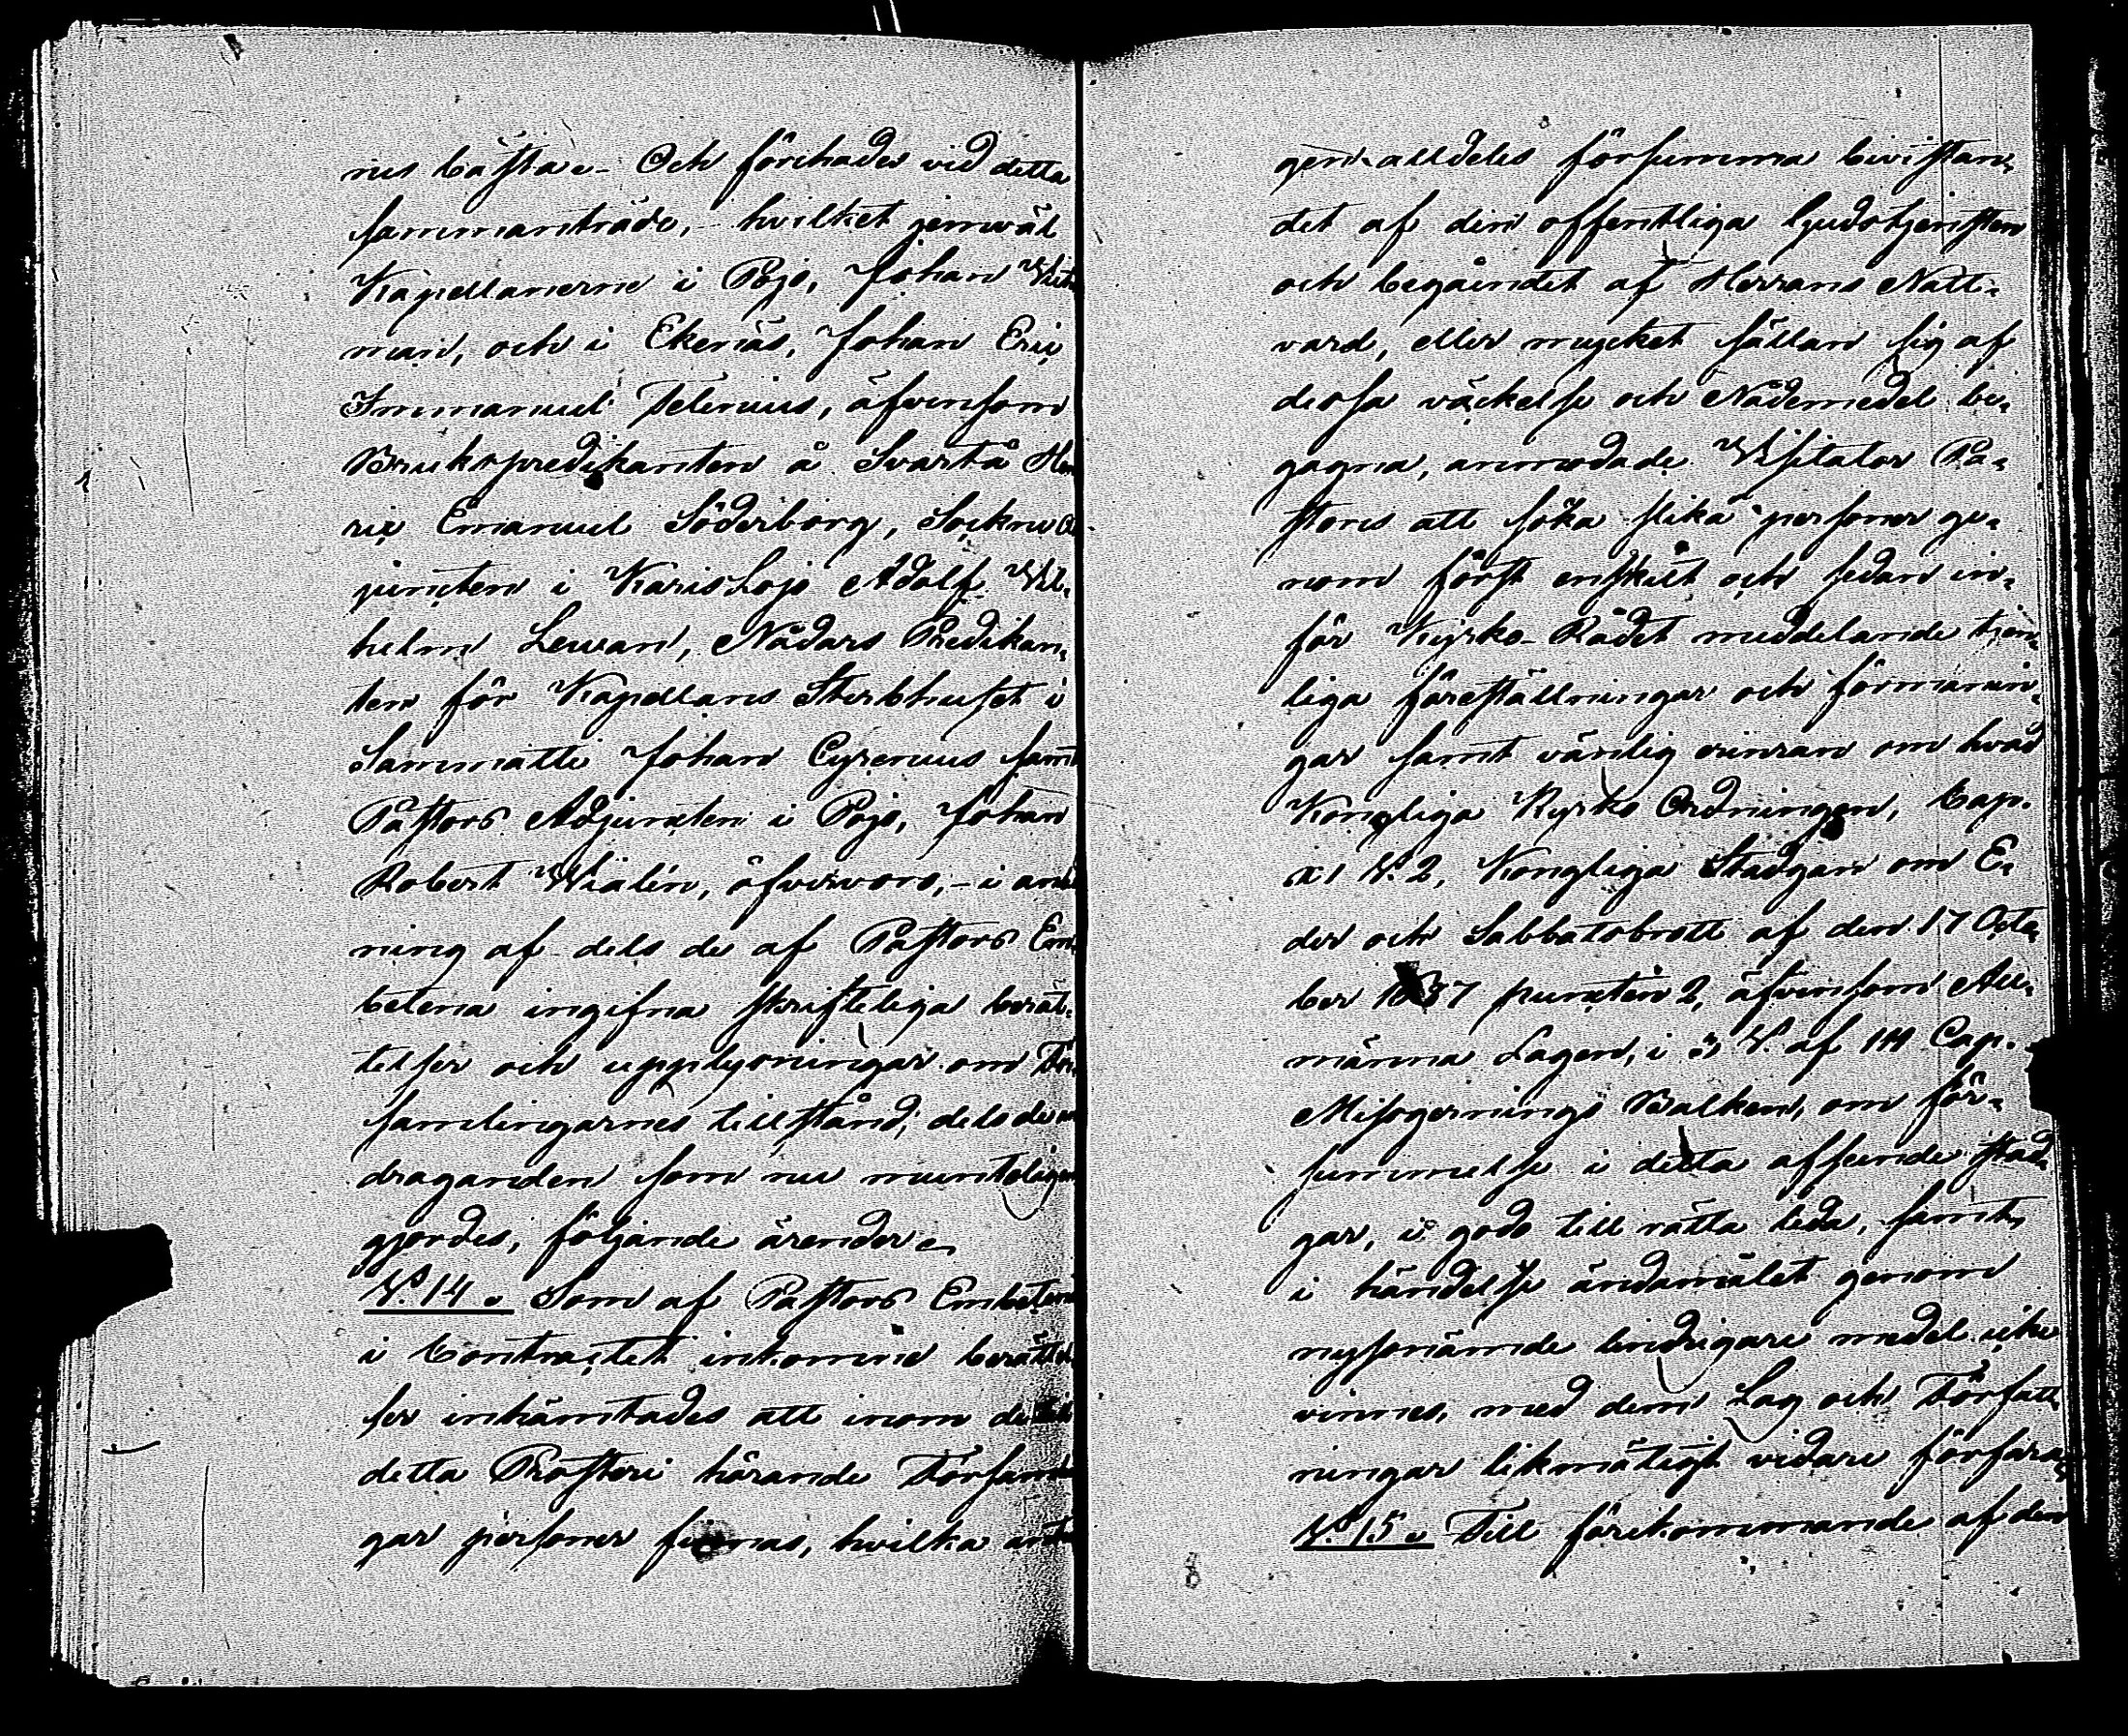 nes bästa. Och förehades vid detta
sammanträde, hvilket jemväl
Kapellanerne i Pojo, Johan Wid
man, och i Ekenäs, Johan Eric
Immanuel Telenius, äfvensom
Bruks predikanten å Svartå Hen
ric Emanuel Söderborg, Sockne
juncten i Karis Lojo Adolf Wil-
helm Lewan, Nådårs Predikan-
ten för Kapellans Sterbhuset i
Sammatti Johan Cyrenius samt
Pastors Adjuncten i Pojo, Johan
Robert Wialén, öfvervoro, - i anled
ning af dels de af Pastors Em-
betena ingifna skrifteliga berät-
telser och upplysningar om För-
samlingarnes tillstånd, dels de an
draganden som nu muntligen
gjordes, följande ärender.
§. 14. Som af Pastors Embetena
i Contractet inkomne berättel
ser inhämtades att inom de till
detta Prosteri hörande Församlin
gar personer finnas, hvilka antin
gen alldeles försumma bevistan-
det af den offentliga Gudstjensten
och begåendet af Herrans Natt-
vard, eller mycket sällan sig af
dessa väckelse och Nådemedel be-
gagna, anmodade Visitator Pa-
stores att söka slika personer ge-
nom först enskilt och sedan in-
för Kyrko-Rådet meddelande tjen-
liga föreställningar och förmanin-
gar samt vänlig erinran om hvad
Kongliga Kyrko Ordningen, Cap.
XI §. 2, Kongliga Stadgan om E-
der och Sabbatsbrott af den 17 Octo-
ber 1687 puncten 2, äfvensom All-
männa Lagen, i 3 §. af III Cap.
Missgernings Balken, om för-
summelse i detta afseende stad-
gar, i godo till rätta leda, samt,
i händelse ändamålet genom
nyssnämde lindrigare medel icke
vinnes, med dem Lag och Författ-
ningar likmätigt vidare förfara.
§. 15. Till förekommande af den